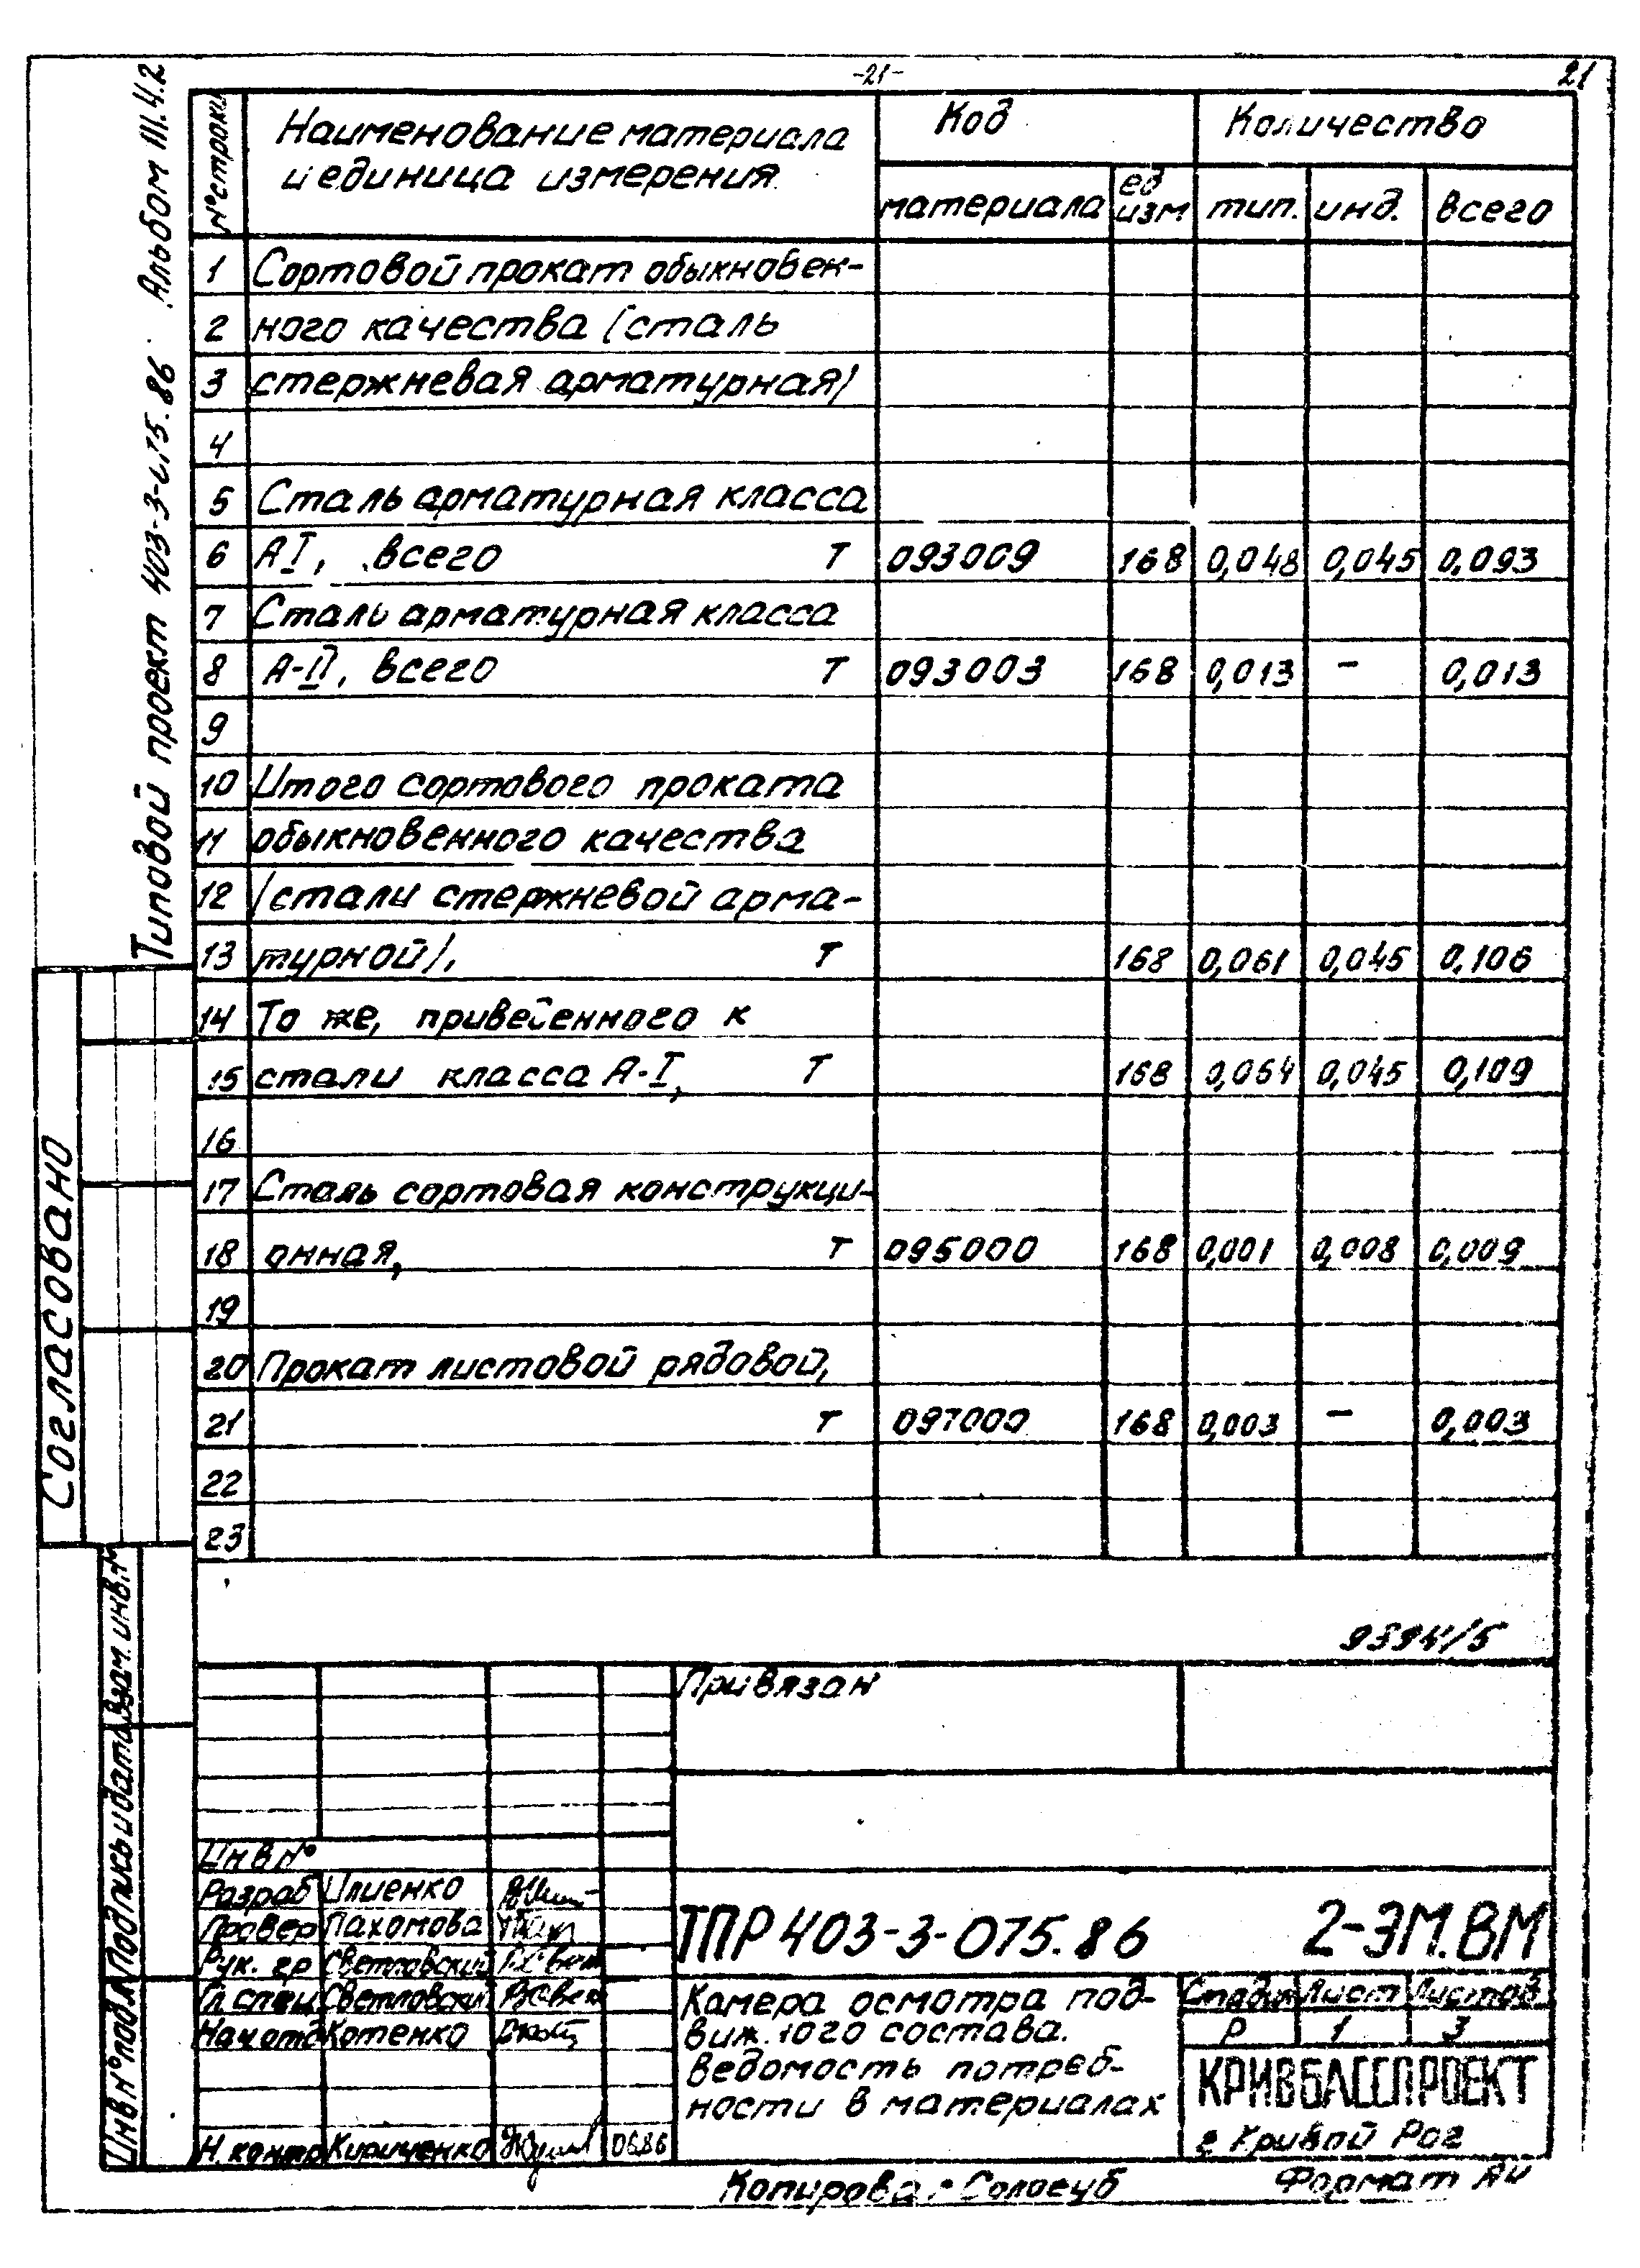 -21-
21
Типовой проект 403-3-075.86 Альбом III.4.2
№ строки
Наименование материала
и единица измерения
Код
Количество
материала
ед
изм
тип.
инд.
всего
1 Сортовой прокат обыкновен-
2 ного качества (сталь
3 стержневая арматурная)
4
5 Сталь арматурная класса
6 АI, всего т 093009 168 0,048 0,045 0,093
7 Сталь арматурная класса
8 А-II, всего т 093003 168 0,013 - 0,013
9
10 Итого сортового проката
11 обыкновенного качества
12 (стали стержневой арма-
13 турной), т 168 0,061 0,045 0,106
14 То же, приведенного к
15 стали класса А-I, т 168 0,064 0,045 0,109
16
17 Сталь сортовая конструкци-
18 онная, т 095000 168 0,001 0,008 0,009
19
20 Прокат листовой рядовой,
21 т 097000 168 0,003 - 0,003
22
23
Согласовано
Взам. инв. №
Подпись и дата
Инв № подл
9394/5
Привязан
Инв №
Разраб Илиенко
Провер Пахомова
Рук. гр Светловский
Гл спец Светловский
Нач отд Котенко
Н. контр Кириченко 06.86
ТПР 403-3-075.86 2-ЭМ.ВМ
Камера осмотра под-
виж.ного состава.
Ведомость потреб-
ности в материалах
Стадия Лист Листов
Р 1 3
КРИВБАССПРОЕКТ
г Кривой Рог
Копировал: Солосуб
Формат А4